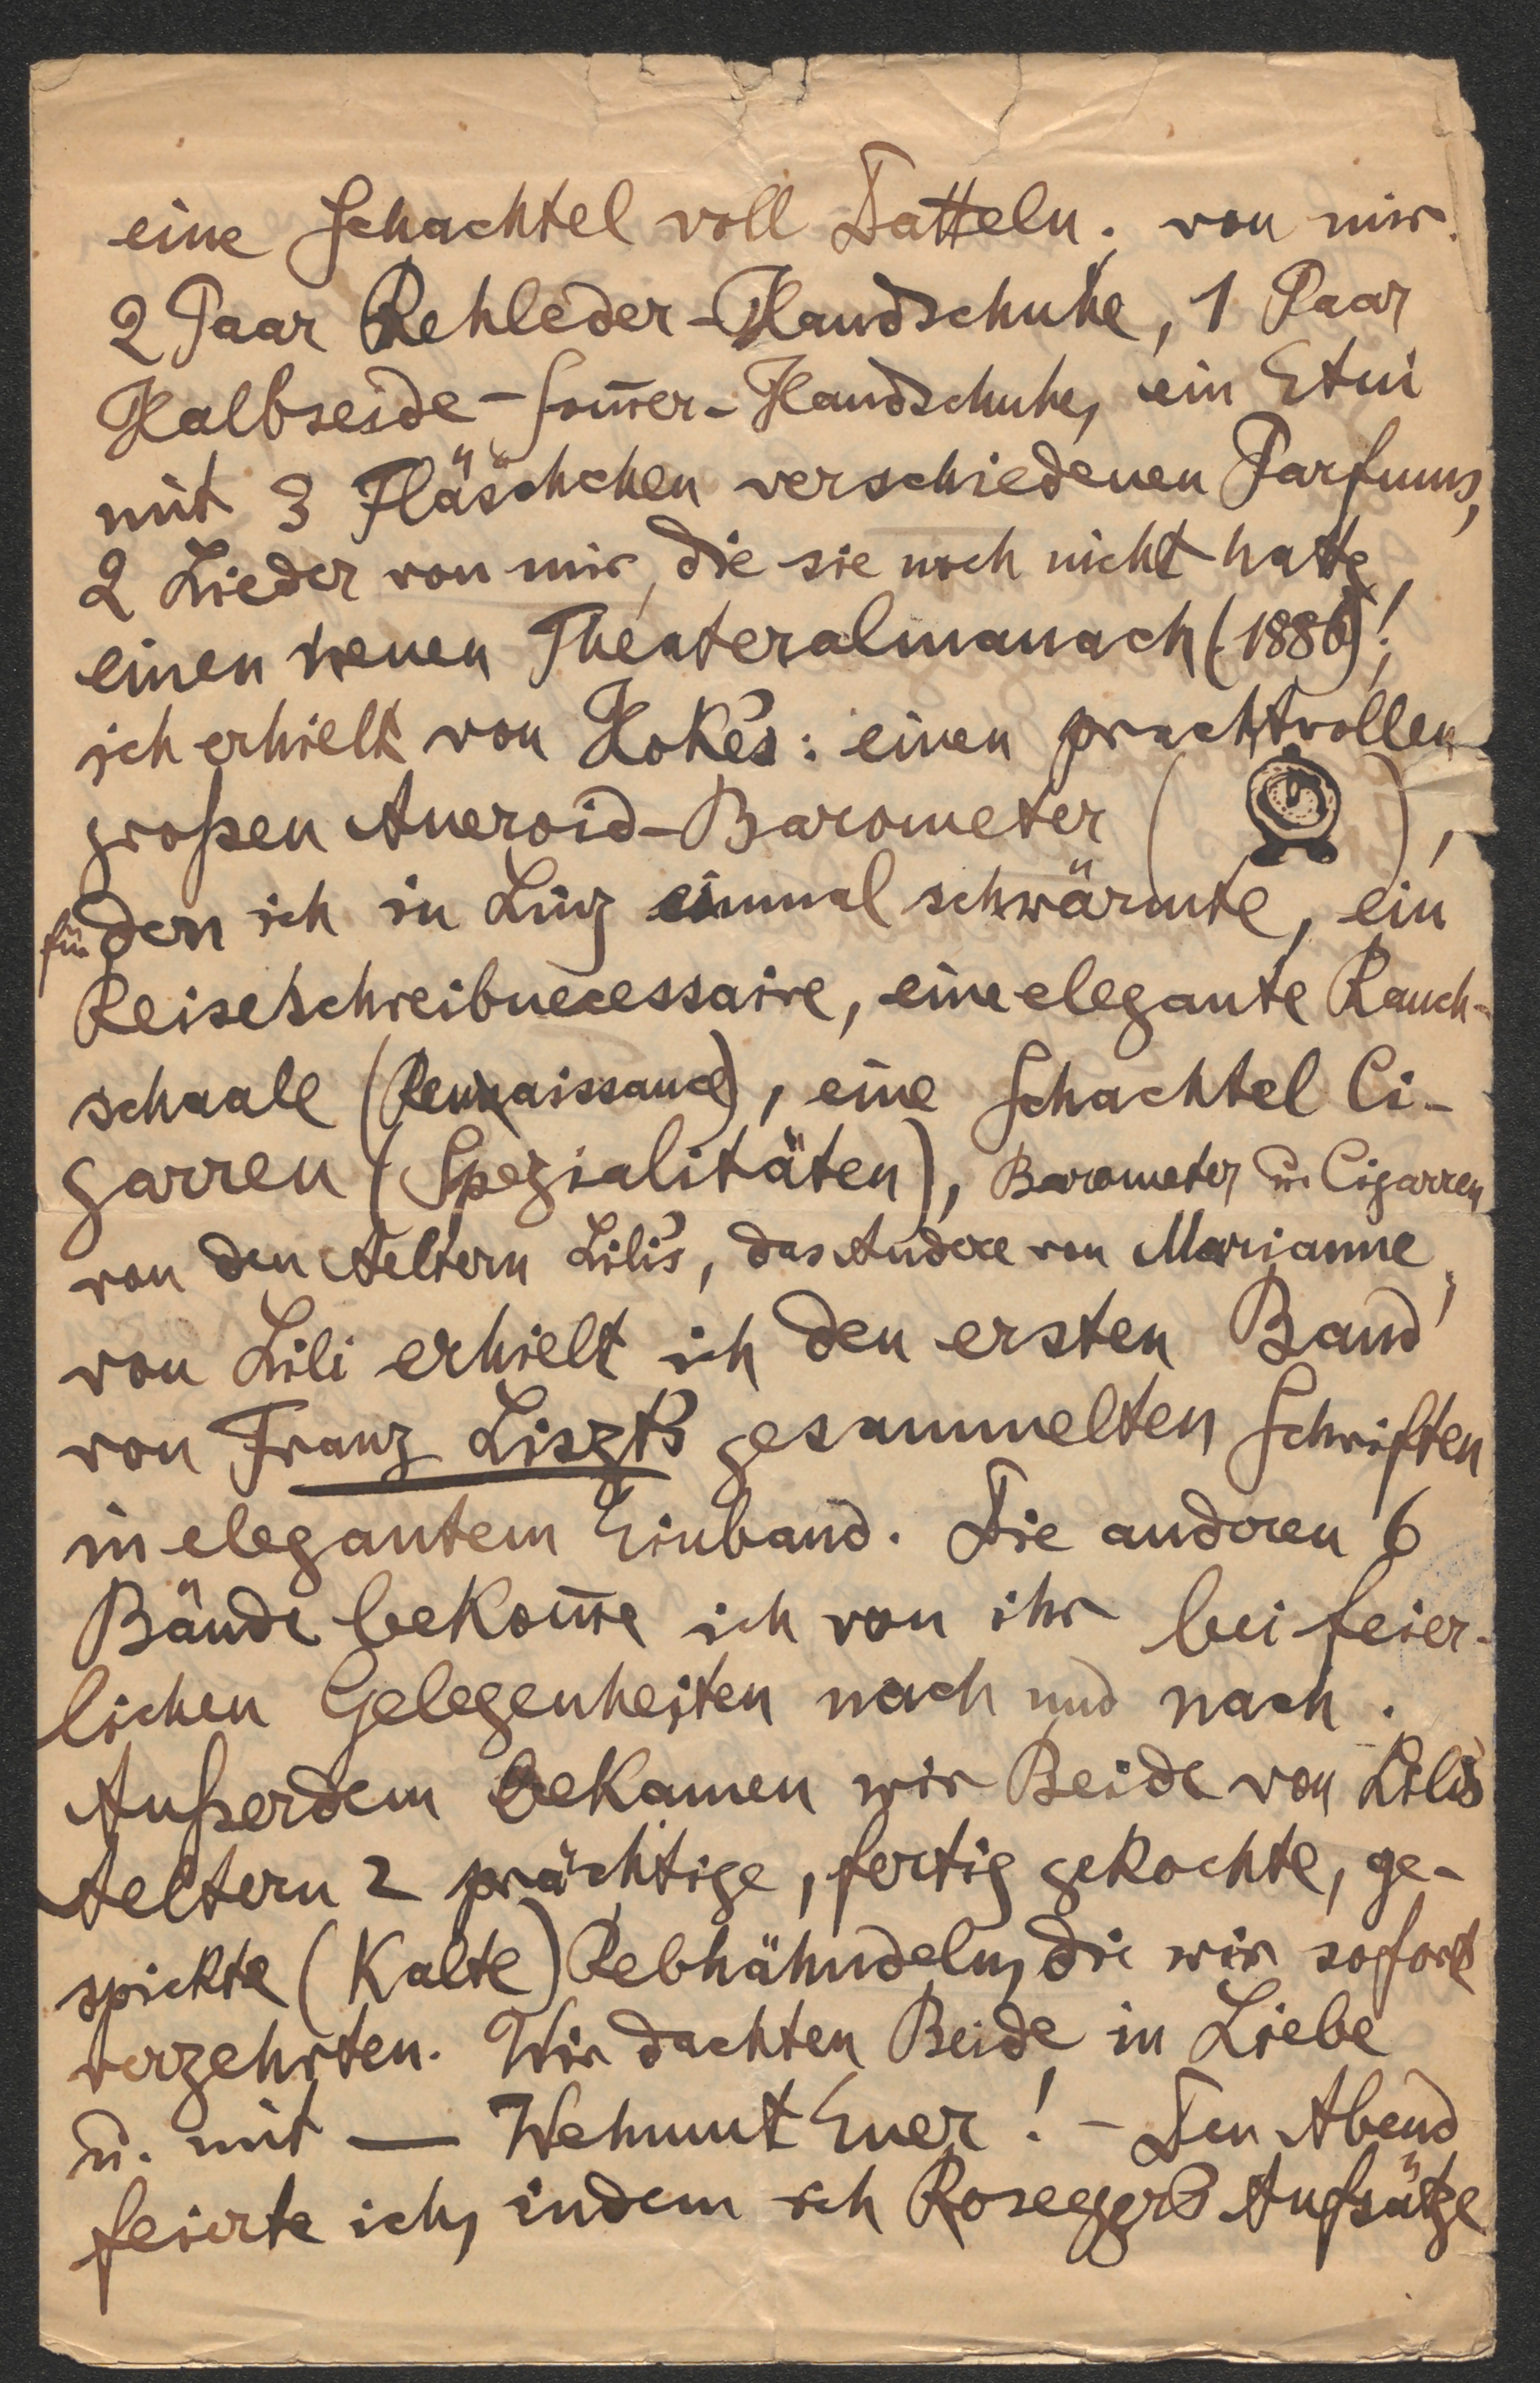 eine Schachtel voll Datteln; von mir
2 Paar Rehleder-Handschuhe, 1 Paar
Halbseide-Som̅er-Handschuhe, ein Etui
mit 3 Fläschchen verschiedenen Parfums,
2 Lieder von mir, die sie noch nicht hatte,
einen neuen Theateralmanach (1886)!;
ich erhielt von Hokes: einen prachtvollen
großen Aneroid-Barometer ( ),
für den ich in Linz einmal schwärmte, ein
Reiseschreibnecessaire, eine elegante Rauch-
schaale (Rennaissance), eine Schachtel Ci-
garren (Spezialitäten), Barometer u. Cigarren
von den Aeltern Lili's, das Andere von Marianne,
von Lili erhielt ich den ersten Band
von Franz Liszt's gesammelten Schriften
in elegantem Einband. Die anderen 6
Bände bekom̅e ich von ihr bei feier-
lichen Gelegenheiten nach und nach.
Außerdem bekamen wir Beide von Lilis
Aeltern 2 prächtige, fertig gekochte, ge-
spickte (kalte) Rebhähndeln, die wir sofort
verzehrten. Wir dachten Beide in Liebe
u. mit — Wehmut Euer! – Den Abend
feierte ich, indem ich Roseggers Aufsätze